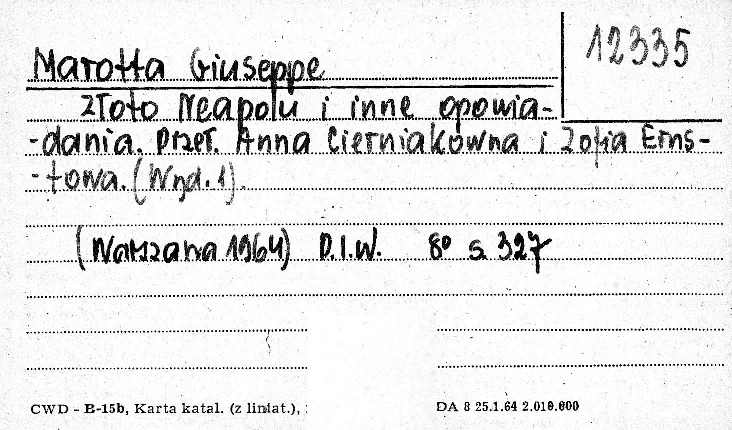 12335
Marotta Giuseppe
Złoto Neapolu i inne opowia-
-dania. Przeł. Anna Cierniakówna i Zofia Erns-
-towa. (Wyd. 1).
(Warszawa 1964) P.I.W. 8° s. 327
CWD - B-15b, Karta katal. (z liniat.),
DA 8 25.1.64 2.010.000